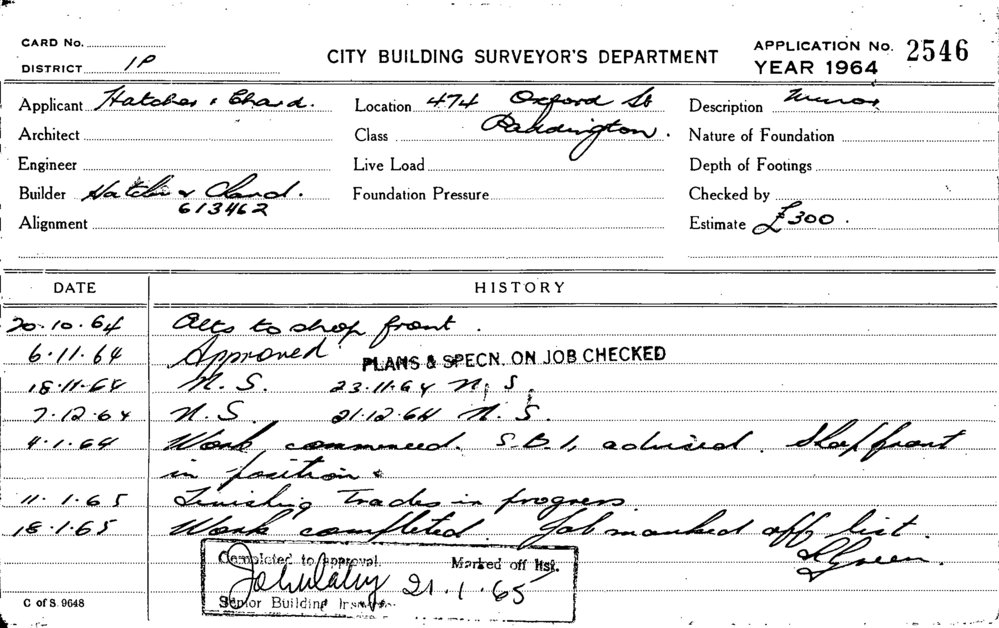 CARD No.
DISTRICT 1P
CITY BUILDING SURVEYOR'S DEPARTMENT
APPLICATION No. 2546
YEAR 1964
Applicant Hatcher & Chard.
Location 474 Oxford St
Paddington.
Description Minor
Architect
Class
Nature of Foundation
Engineer
Live Load
Depth of Footings
Builder Hatcher & Chard.
613462
Foundation Pressure
Checked by
Alignment
Estimate £300.
DATE HISTORY
20.10.64 Alts to shop front.
6.11.64 Approved PLANS & SPECN. ON JOB CHECKED
18.11.64 N.S. 23.11.64 N.S.
7.12.64 N.S. 21.12.64 N.S.
4.1.64 Work commenced. S.B.I. advised. Shop front
in position.
11.1.65 Finishing Trades in progress
18.1.65 Work completed. Job marked off list.
Green.
Completed to approval. Marked off list.
21.1.65
Senior Building Inspector
C of S. 9648